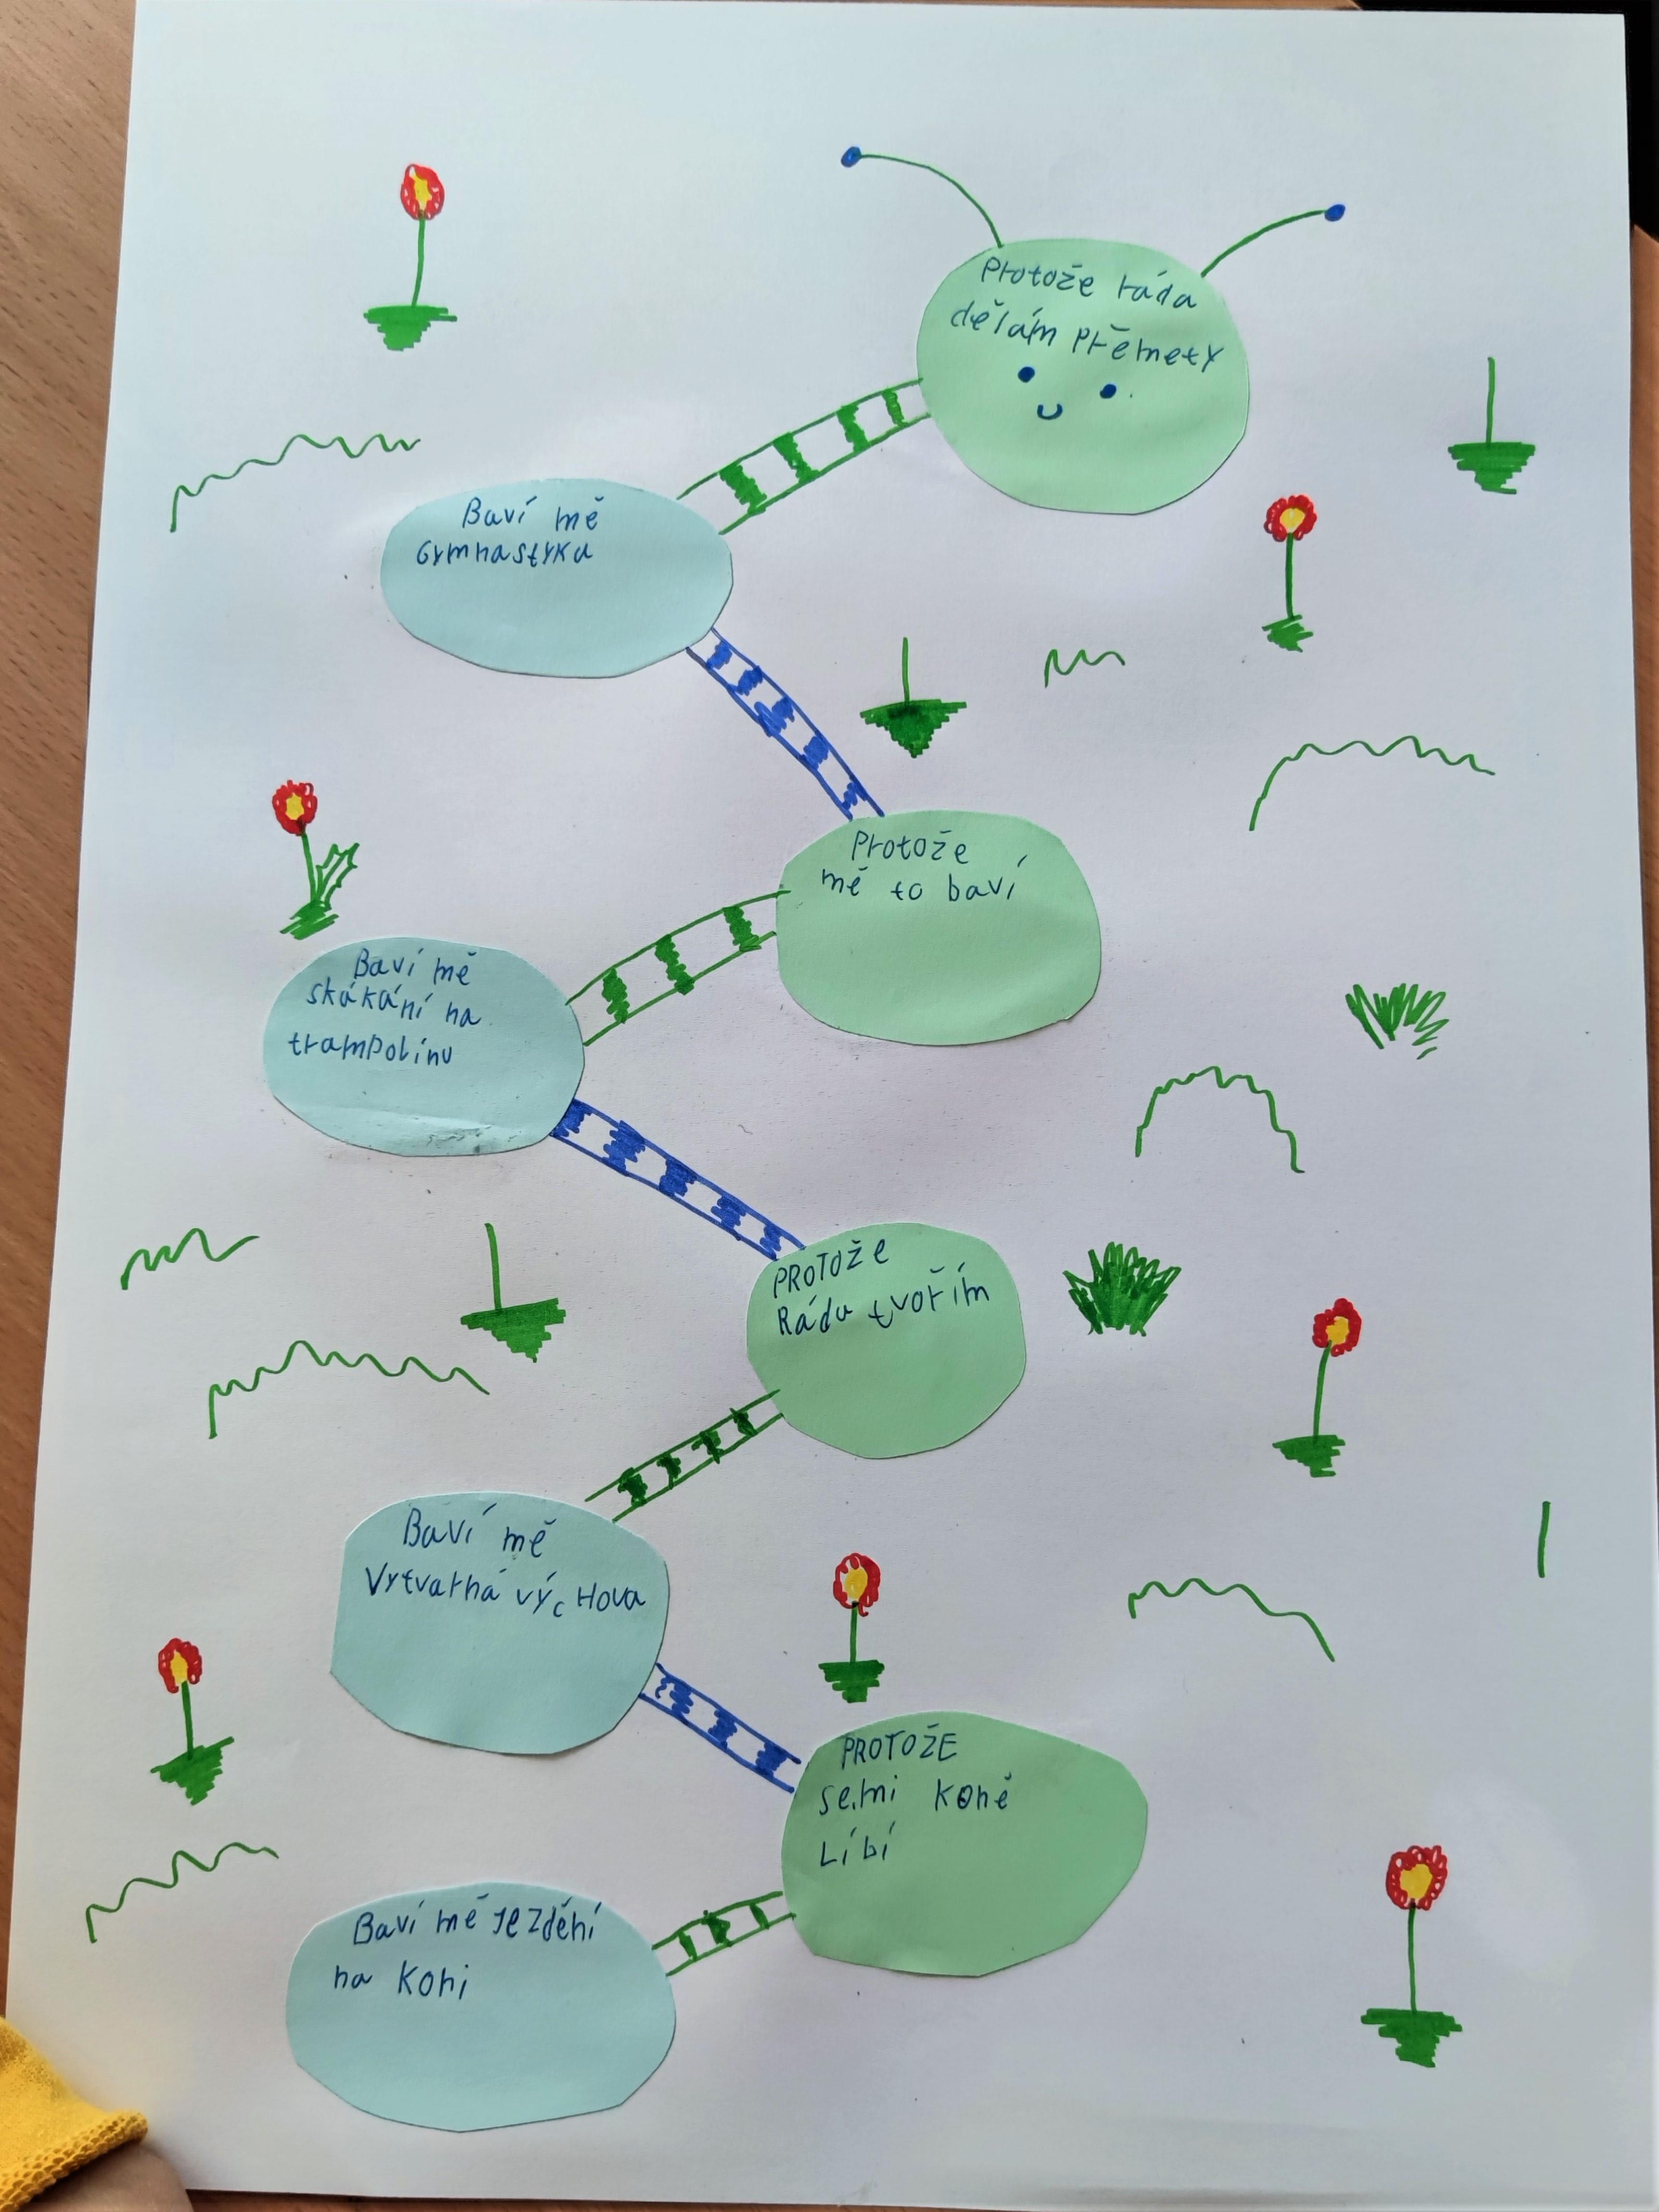 Protože ráda
dělám přěmety
Baví mě
Gymnastyka
Protože
mě to baví
Baví mě
skákání na
trampolínu
PROTOŽE
Ráda tvořím
Baví mě
Vytvarná výcHova
PROTOŽE
se mi koně
Líbí
Baví mě Jezdění
na Koni